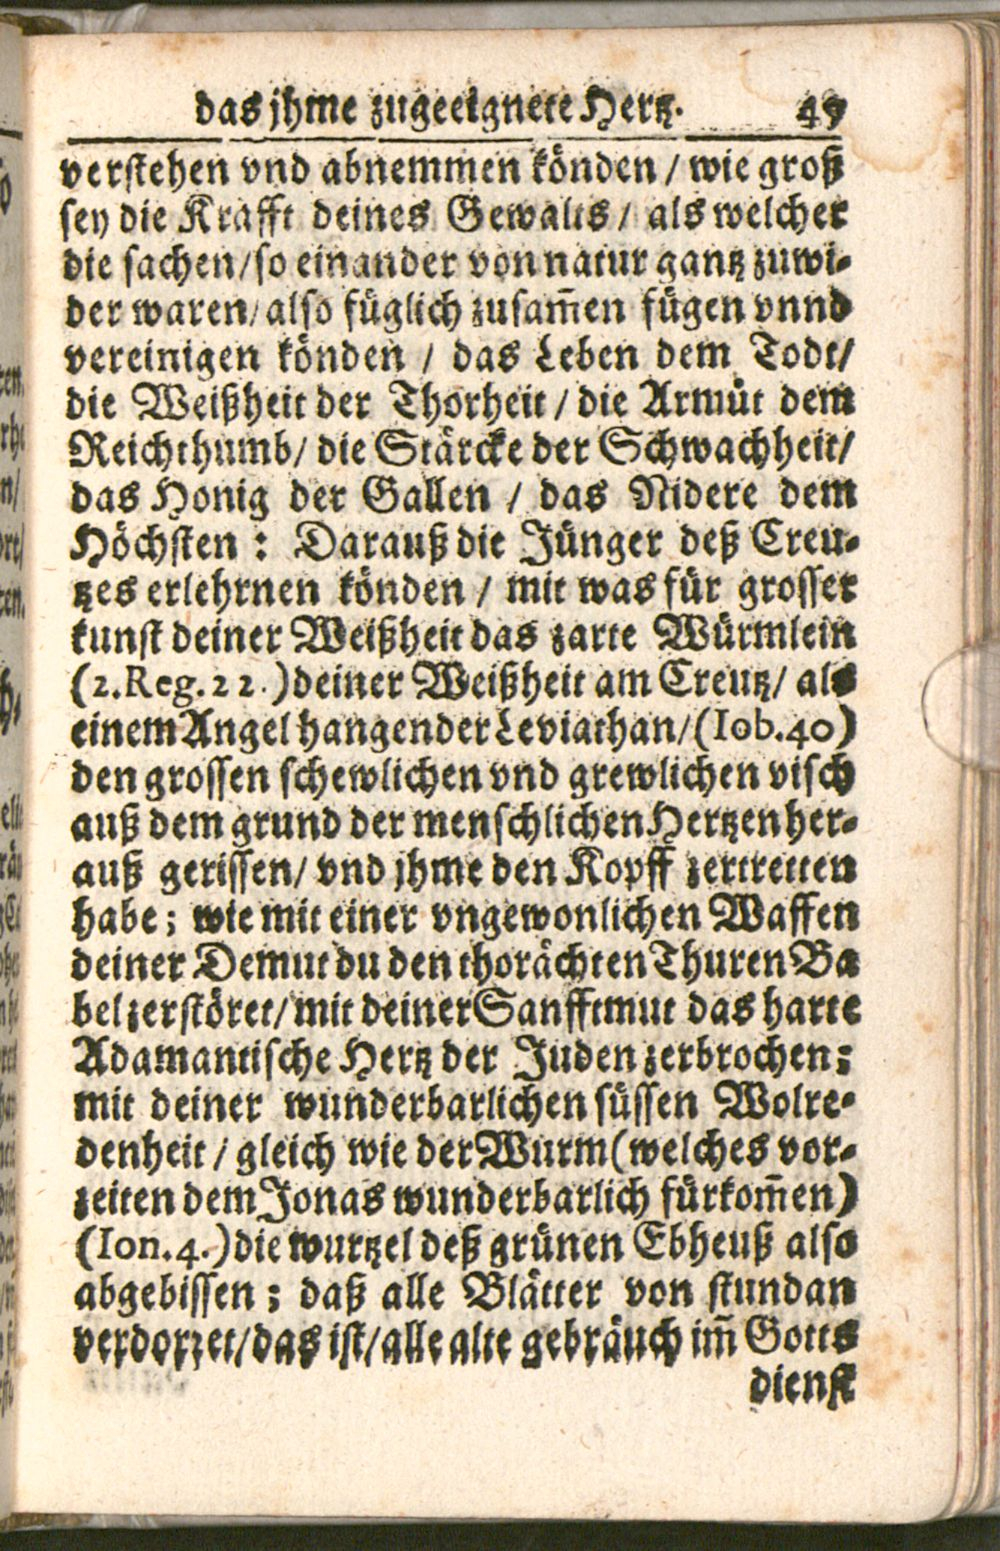 das jhme zugeeignete Hertz. 49
verstehen vnd abnemmen könden / wie groß
sey die Krafft deines Gewalts / als welcher
die sachen / so einander von natur gantz zuwi-
der waren / also füglich zusam̃en fügen vnnd
vereinigen könden / das Leben dem Todt /
die Weißheit der Thorheit / die Armůt dem
Reichthumb / die Stärcke der Schwachheit /
das Honig der Gallen / das Nidere dem
Höchsten : Darauß die Jünger deß Creu-
tzes erlehrnen könden / mit was für grosser
kunst deiner Weißheit das zarte Würmlein
(2. Reg. 22.) deiner Weißheit am Creutz / als
einem Angel hangender Leviathan / (Iob. 40)
den grossen schewlichen vnd grewlichen visch
auß dem grund der menschlichen Hertzen her-
auß gerissen / vnd jhme den Kopff zertretten
habe ; wie mit einer vngewonlichen Waffen
deiner Demut du den thorächten Thuren Ba
bel zerstöret / mit deiner Sanfftmut das harte
Adamantische Hertz der Juden zerbrochen ;
mit deiner wunderbarlichen süssen Wolre-
denheit / gleich wie der Wurm (welches vor-
zeiten dem Jonas wunderbarlich fürkom̃en)
(Ion. 4.) die wurtzel deß grünen Ebheuß also
abgebissen ; daß alle Blätter von stundan
verdorret / das ist / alle alte gebräuch im̃ Gotts
dienst